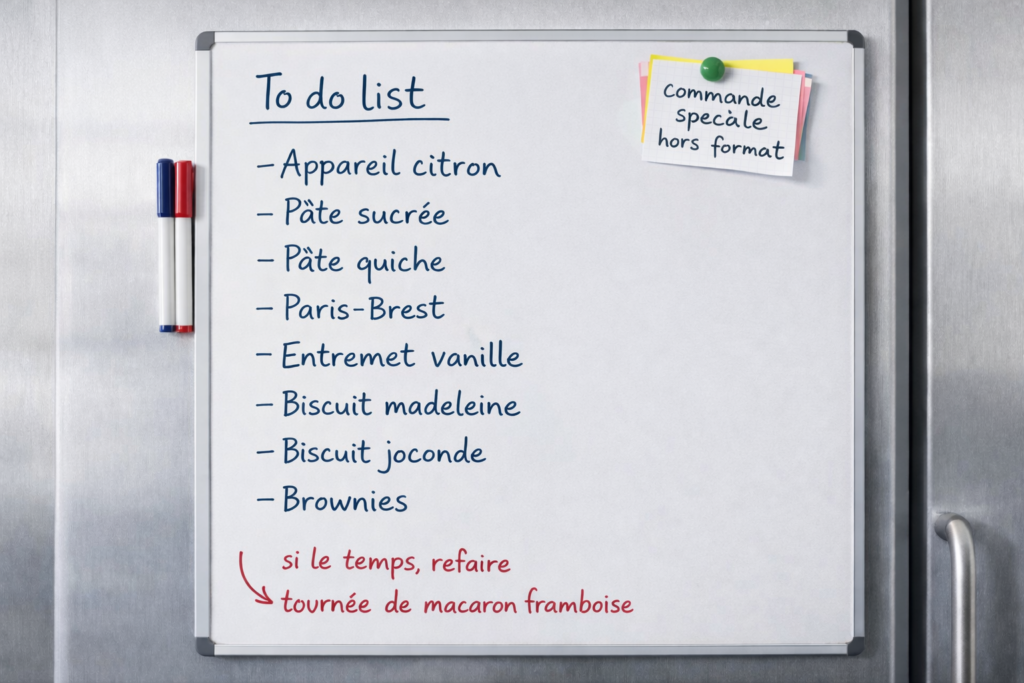 To do list
- Appareil citron
- Pâte sucrée
- Pâte quiche
- Paris-Brest
- Entremet vanille
- Biscuit madeleine
- Biscuit joconde
- Brownies
si le temps, refaire
tournée de macaron framboise
commande
specàle
hors format